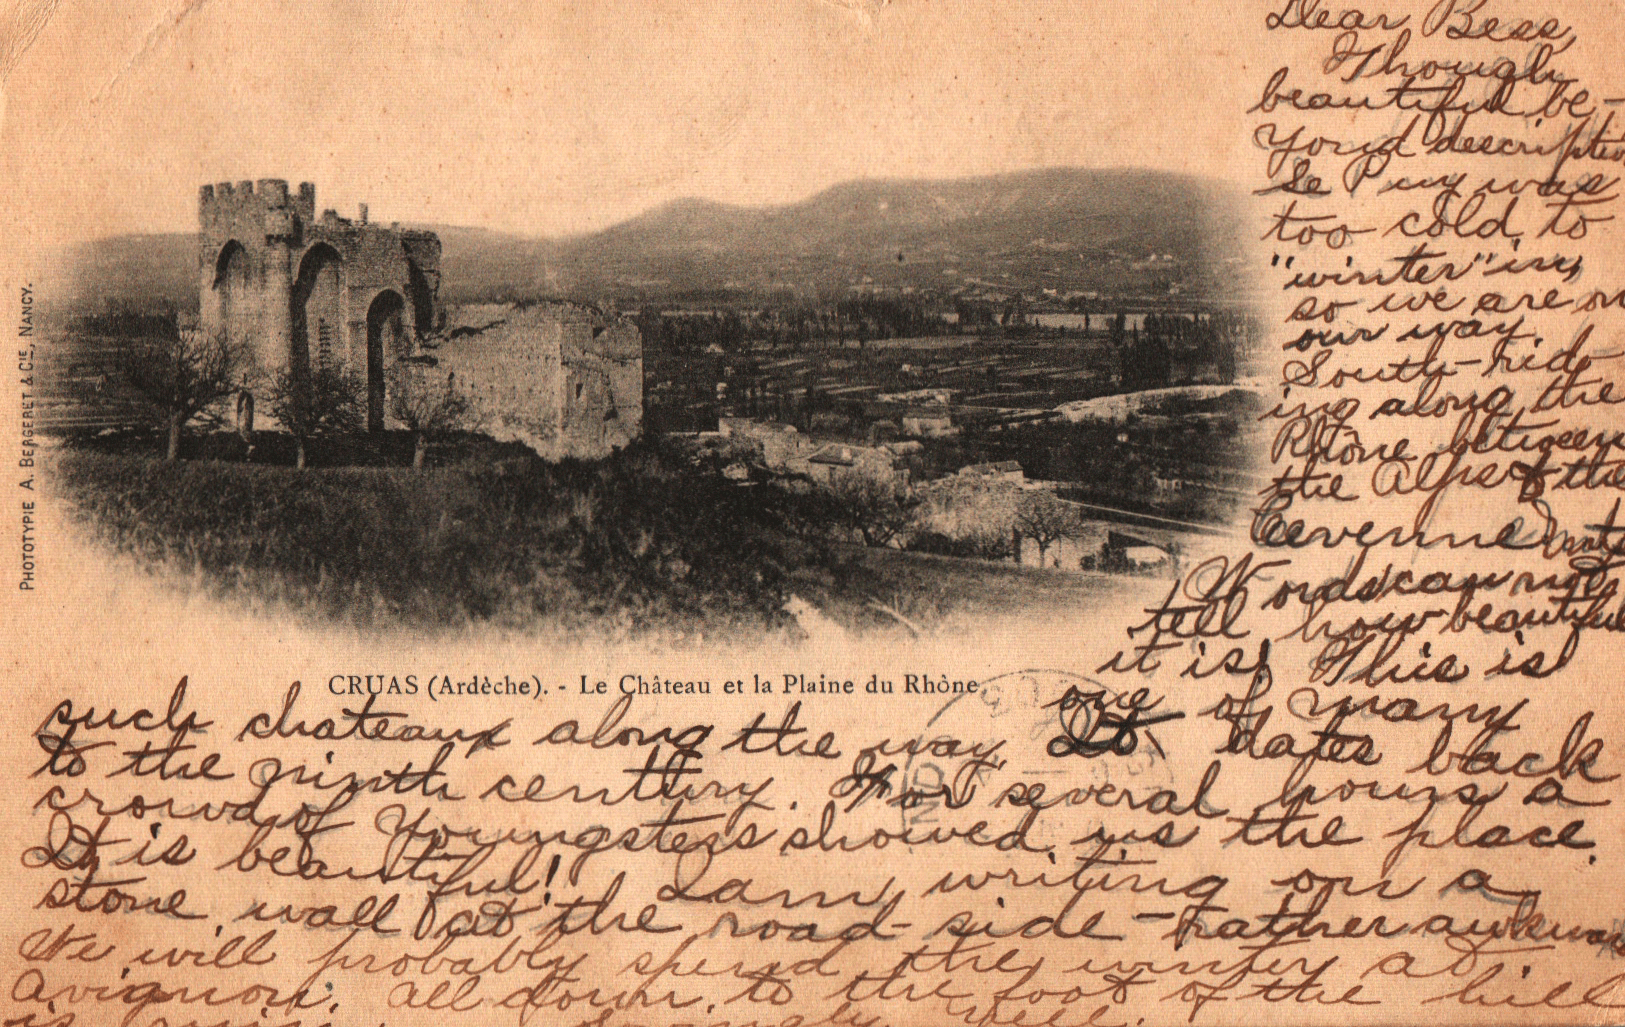 Dear Bess,
Though
beautiful be-
yond description
Le Puy was
too cold to
"winter" in,
so we are on
our way
South-rid-
ing along the
Rhône between
the Alps & the
Cevenne Mts
Words can not
tell how beautiful
it is! This is
one of many
PHOTOTYPIE A. BERGERET & CIE, NANCY.
CRUAS (Ardèche). - Le Château et la Plaine du Rhône.
such chateaux along the way. It dates back
to the ninth century. For several hours a
crowd of youngsters showed us the place.
It is beautiful! I am writing on a
stone wall at the road-side - rather awkward
We will probably spend the winter at
Avignon. All down to the foot of the hill
is well.